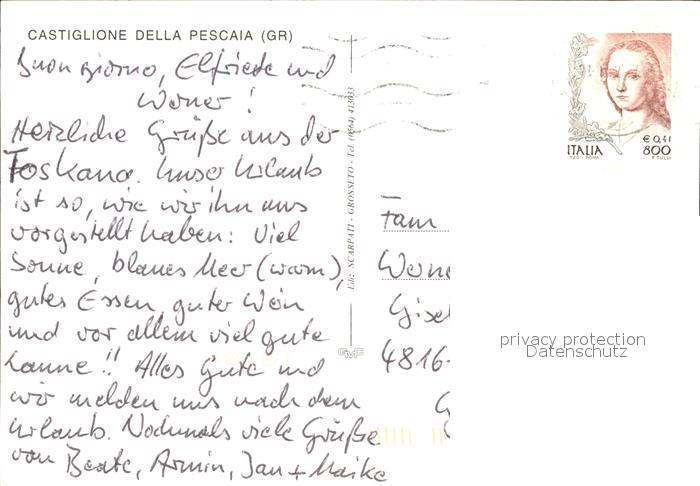 CASTIGLIONE DELLA PESCAIA (GR)
Buon giorno, Elfriede und
Werner!
Herzliche Grüße aus der
Toskana. Unser Urlaub
ist so, wie wir ihn uns
vorgestellt haben: Viel
Sonne, blaues Meer (warm),
gutes Essen, guter Wein
und vor allem viel gute
Laune!! Alles Gute und
wir melden uns nach dem
Urlaub. Nochmals viele Grüße
von Beate, Armin, Jan + Maike
Ediz. SCARPATI - GROSSETO - Tel. (0564) 413033
€ 0,41
ITALIA 800
I.P.Z.S. - ROMA F. TULLI
Fam
Wern
Gisel
4816
G
privacy protection
Datenschutz